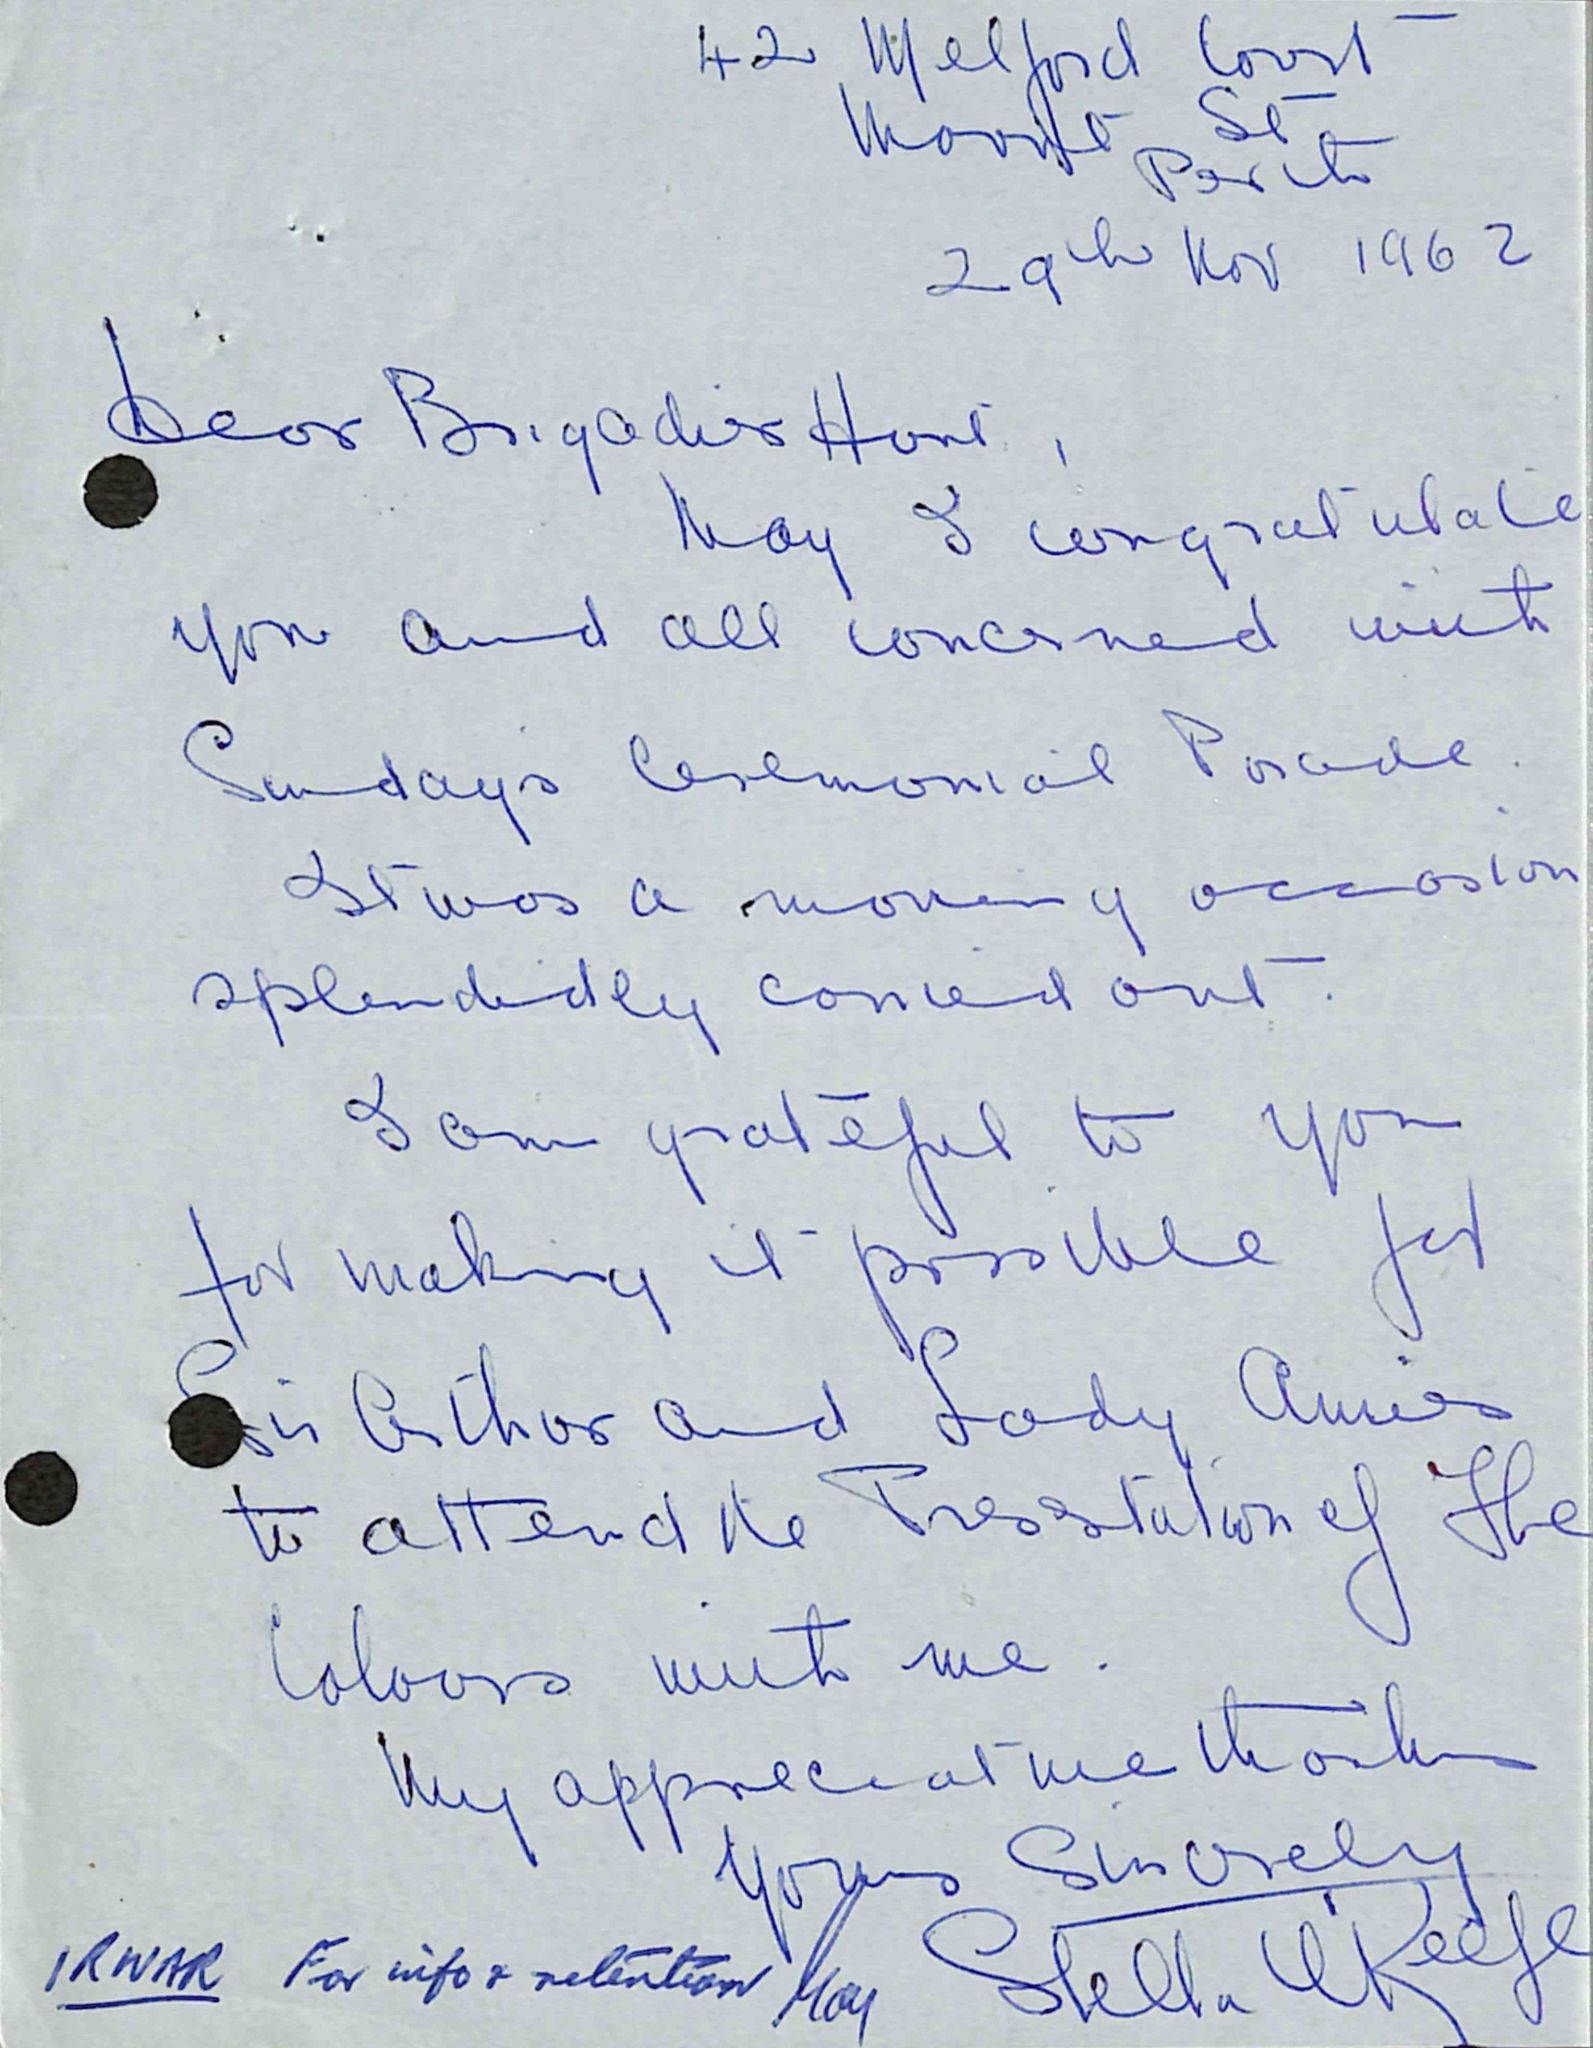 42 Melford Court
Mount St
Perth
29th Nov 1962
Dear Brigadier Hunt,
May I congratulate
you and all concerned with
Sunday's Ceremonial Parade.
It was a moving occasion
splendidly carried out.
I am grateful to you
for making it possible for
Sir Arthur and Lady Amies
to attend the Presetation of The
Colours with me.
My appreciative thanks
Yours Sincerely
Stella O'Keefe
1RWAR For info & retention